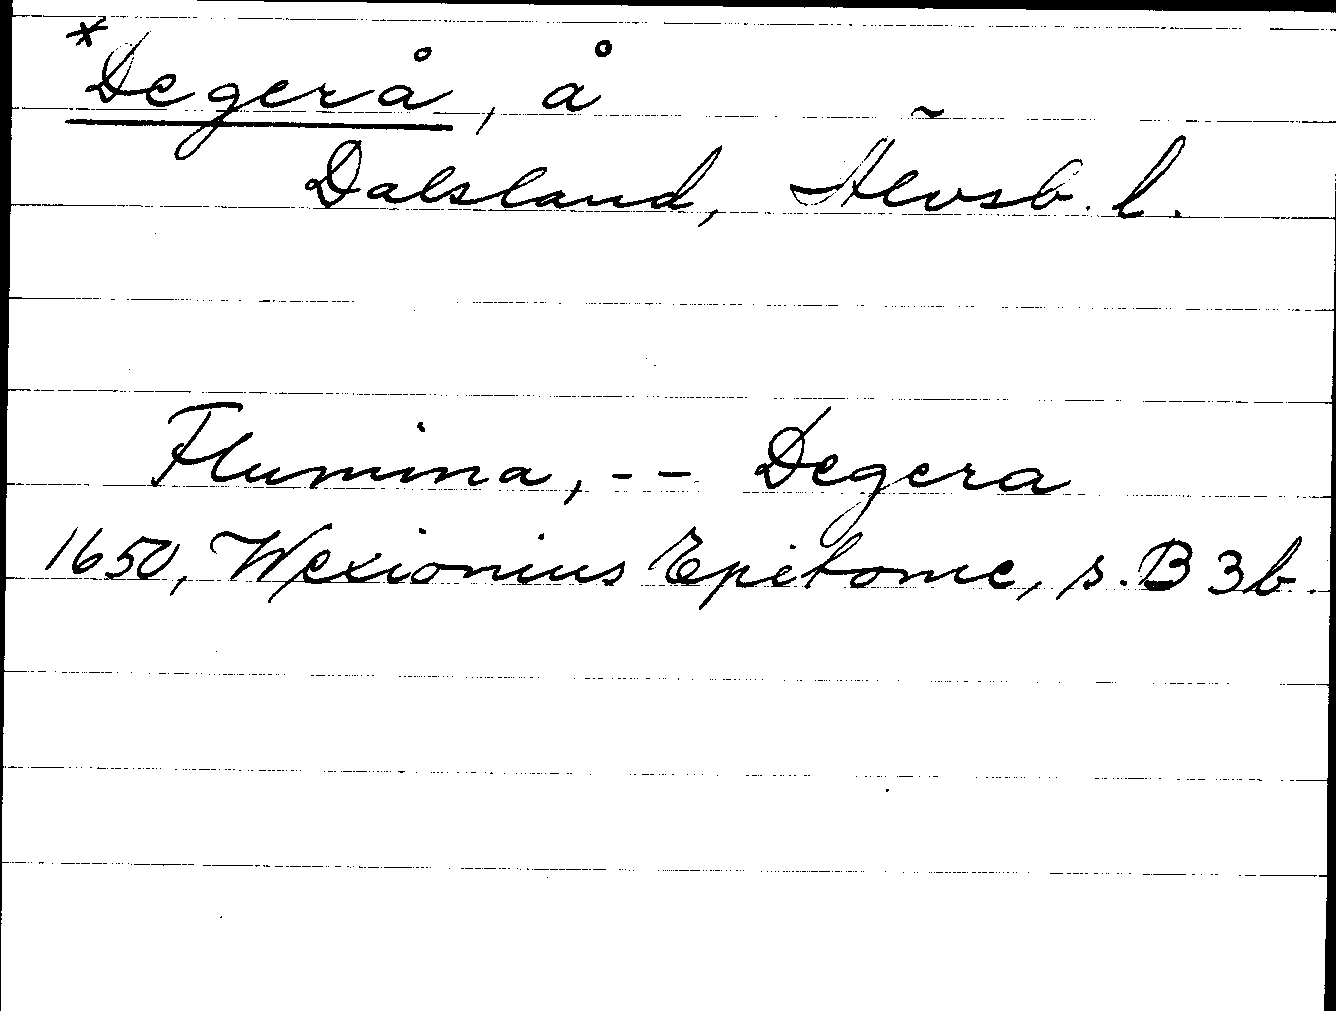 *Degerå, å
Dalsland, Älvsb. l.
Flumina, -- Degera
1650, Wexionius Epitome, s. B 3b.